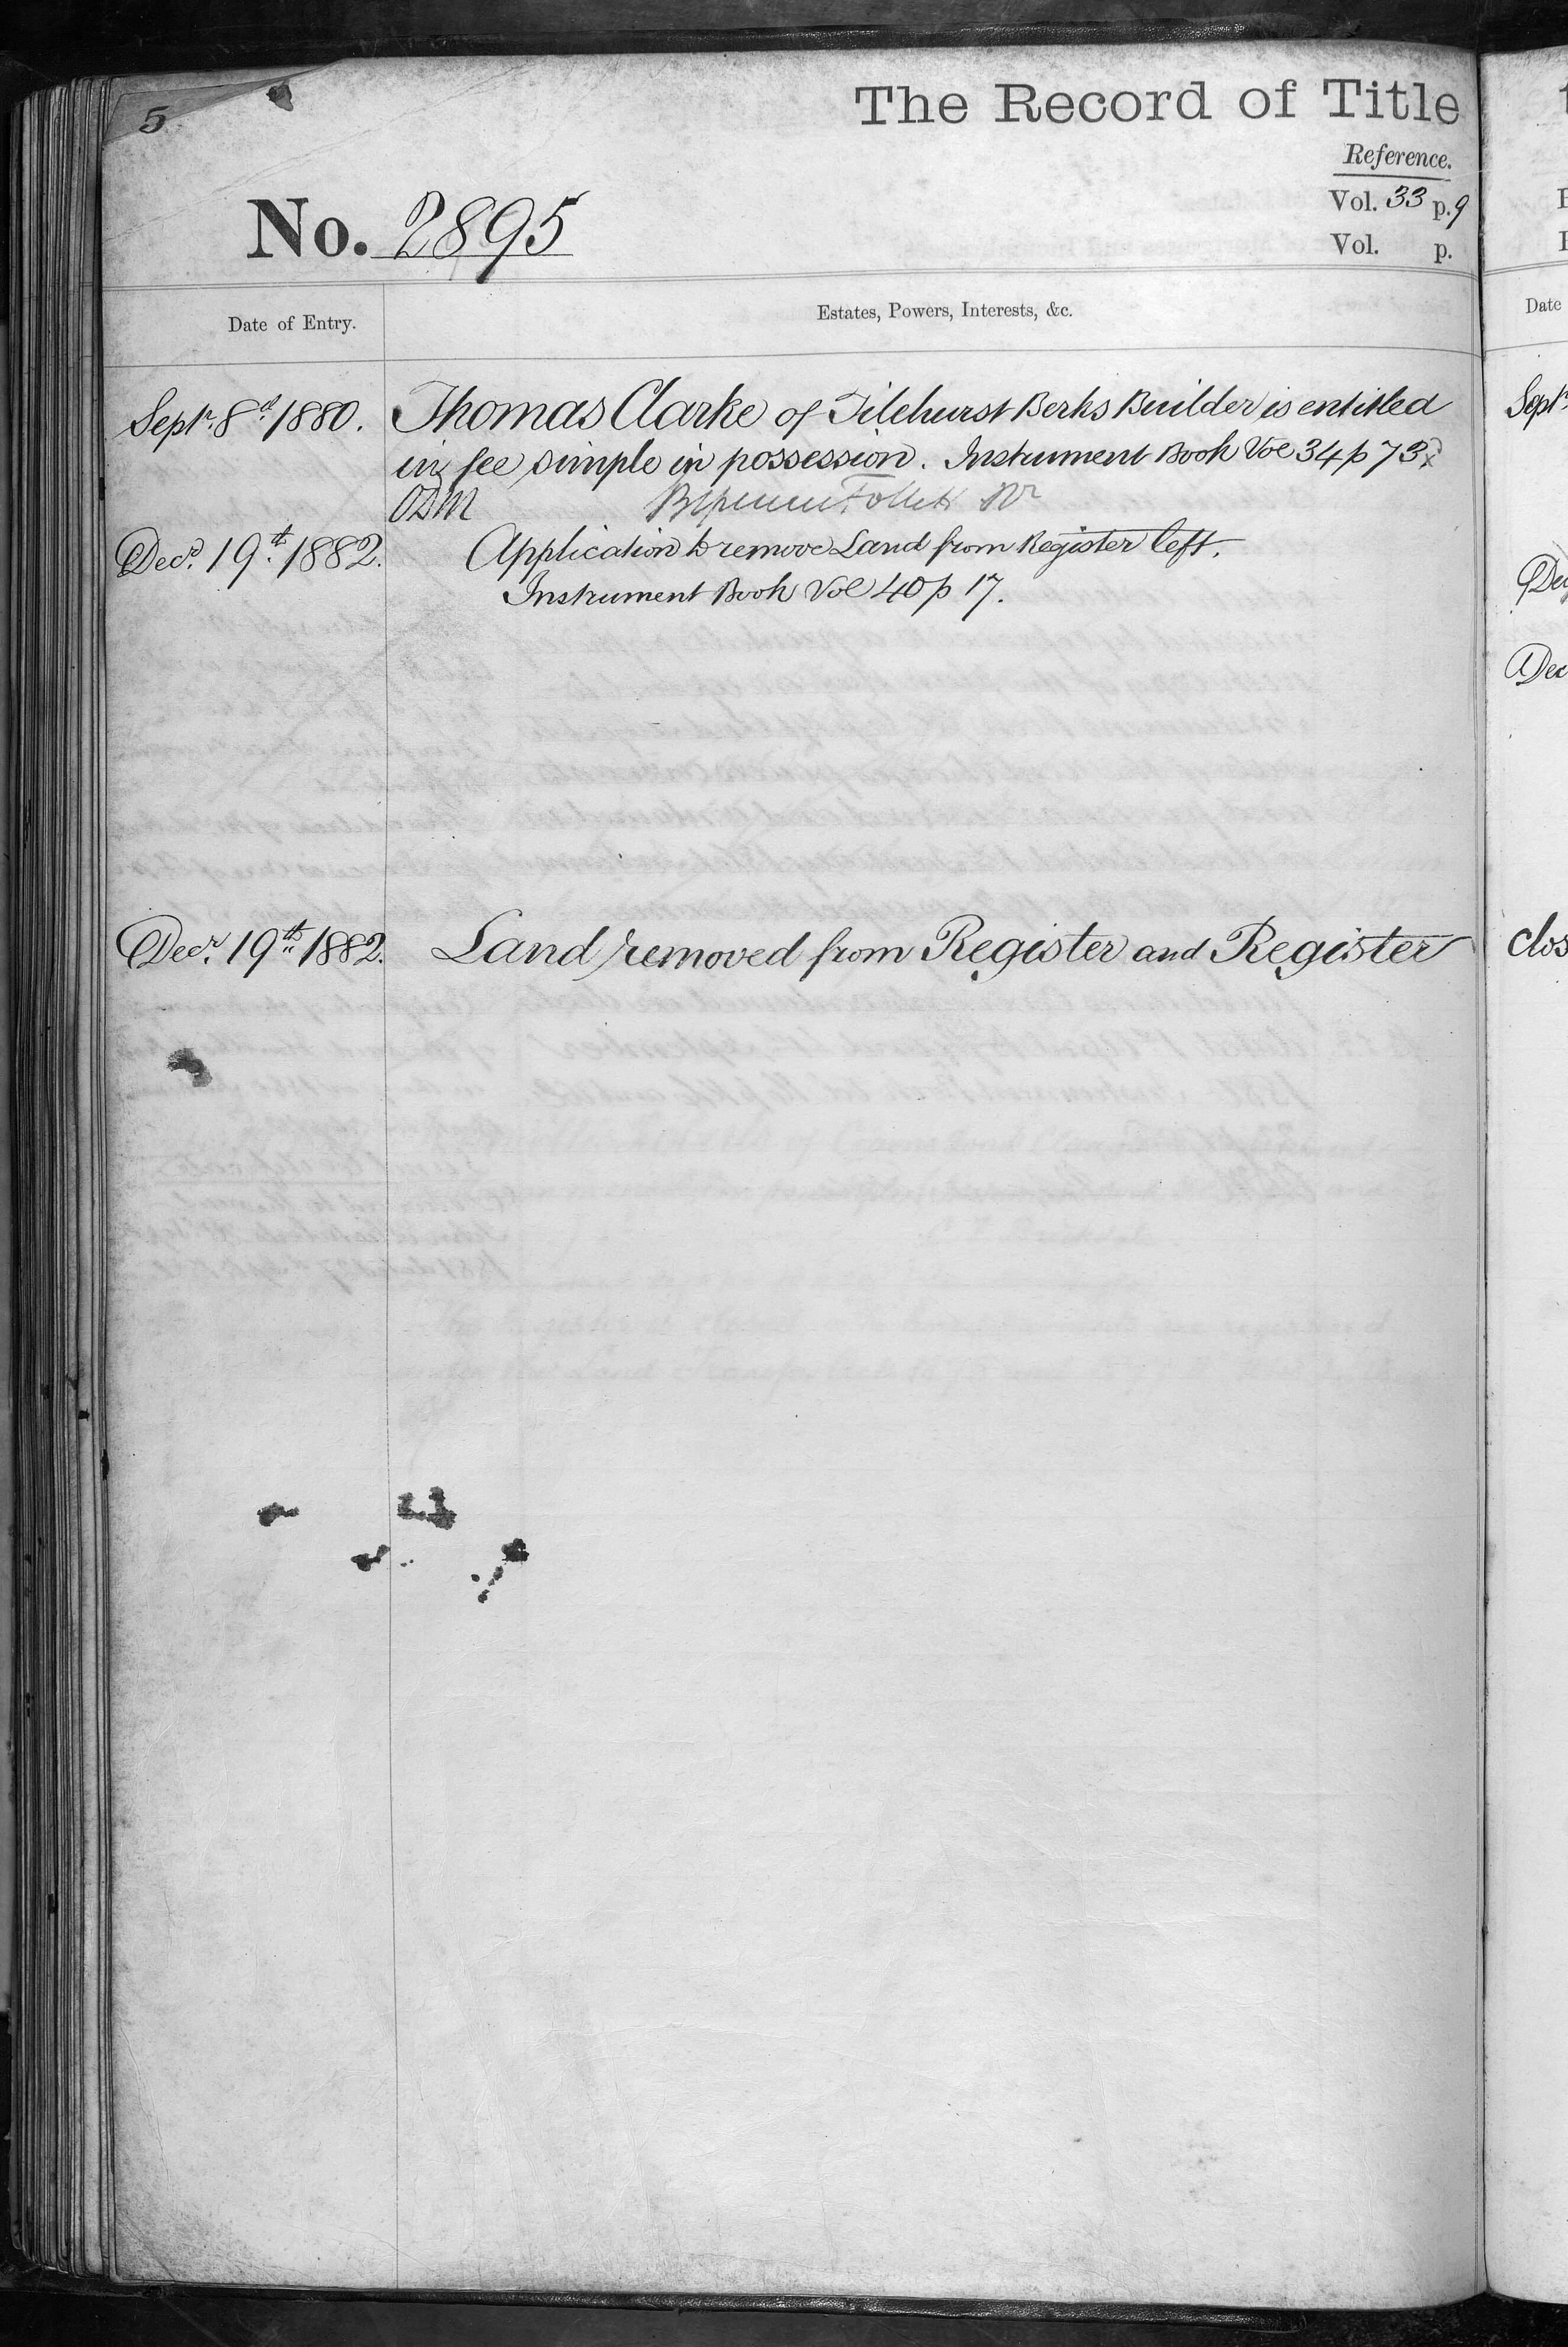 5
The Record of Title
Reference.
Vol. 33 p. 9
Vol. p.
No. 2895
Date of Entry.
Estates, Powers, Interests, &c.
Date
Septr. 8th 1880. Thomas Clarke of Tilehurst Berks Builder is entitled
in fee simple in possession. Instrument Book Vol 34 p 73
ODM Follett Rr
Decr. 19th 1882. Application to remove Land from Register left.
Instrument Book Vol 40 p 17.
Decr. 19th 1882. Land removed from Register and Register
Septr
Dec
clos